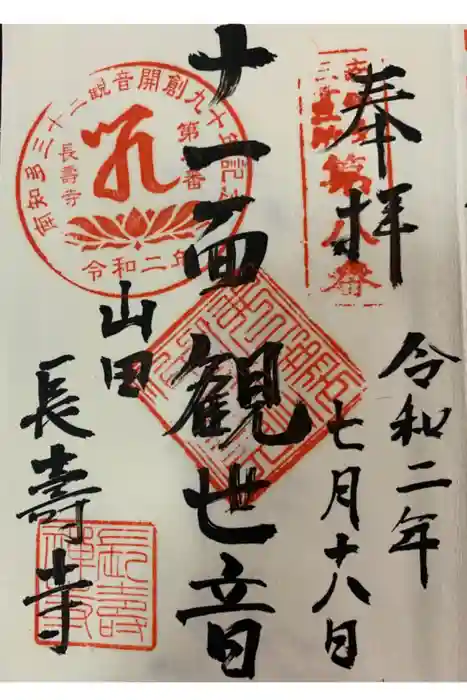 奉拝
令和二年
七月十八日
十一面観世音
山田
長壽寺
南知多三十三観音開創九十年記念
第八番
長壽寺
令和二年
第八番
長壽
禅寺